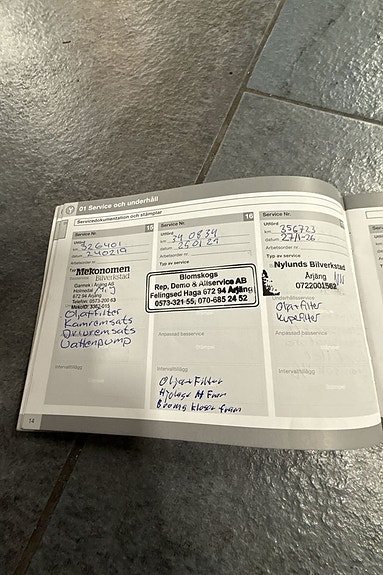 01 Service och underhåll
Servicedokumentation och stämplar
Service Nr. 15
Utförd
km. 326401
datum 240219
Arbetsorder nr
Typ
Mekonomen
Bilverkstad
Holmedal
672 94 Årjäng
Telefon: 0573-200 63
Oljefilter
Kamremsats
Drivremsats
Vattenpump
Intervalltillägg
14
Service Nr. 16
Utförd
km. 340834
datum 25 01 29
Arbetsorder nr
Typ av service
Blomskogs
Rep, Demo & Allservice AB
Felingsed Haga 672 94 Årjäng
0573-321 55, 070-685 24 52
Anpassad basservice
Intervalltillägg
Oljor Filter
Hjolager
Broms klossar fram
Service Nr.
Utförd
km. 356723
datum 27/1-26
Arbetsorder nr
Typ av service
Nylunds Bilverkstad
Årjäng
0722001562
Underhållsservice
Oljefilter
Kupefilter
Anpassad basservice
Intervalltillägg